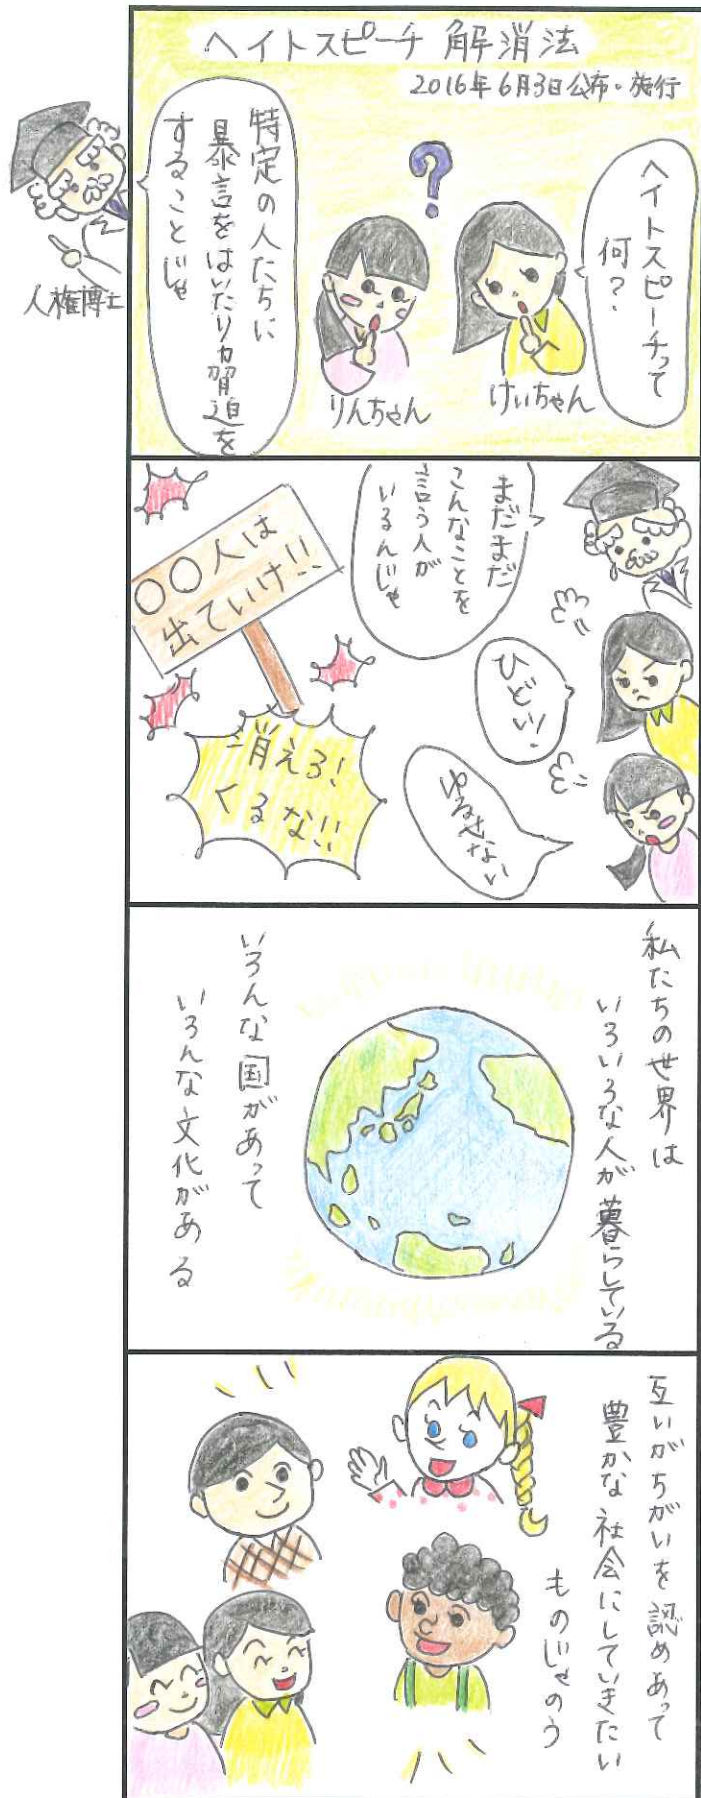 ヘイトスピーチ解消法
2016年6月3日公布・施行
ヘイトスピーチって
何?
?
けいちゃん
りんちゃん
特定の人たちに
暴言をはいたり脅迫を
することじゃ
人権博士
まだまだ
こんなことを
言う人が
いるんじゃ
〇〇人は
出ていけ!!
ひどい!
消えろ!
くるな!!
ゆるさない
私たちの世界は
いろいろな人が暮らしている
いろんな国があって
いろんな文化がある
互いがちがいを認めあって
豊かな社会にしていきたい
ものじゃのう